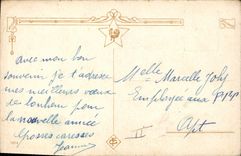 avec mon bon
souvenir je t'adresse
mes meilleurs vœux
de bonheur pour
la nouvelle année
Grosses caresses
Jeanne
Melle Marcelle Joly
Employée aux
Apt